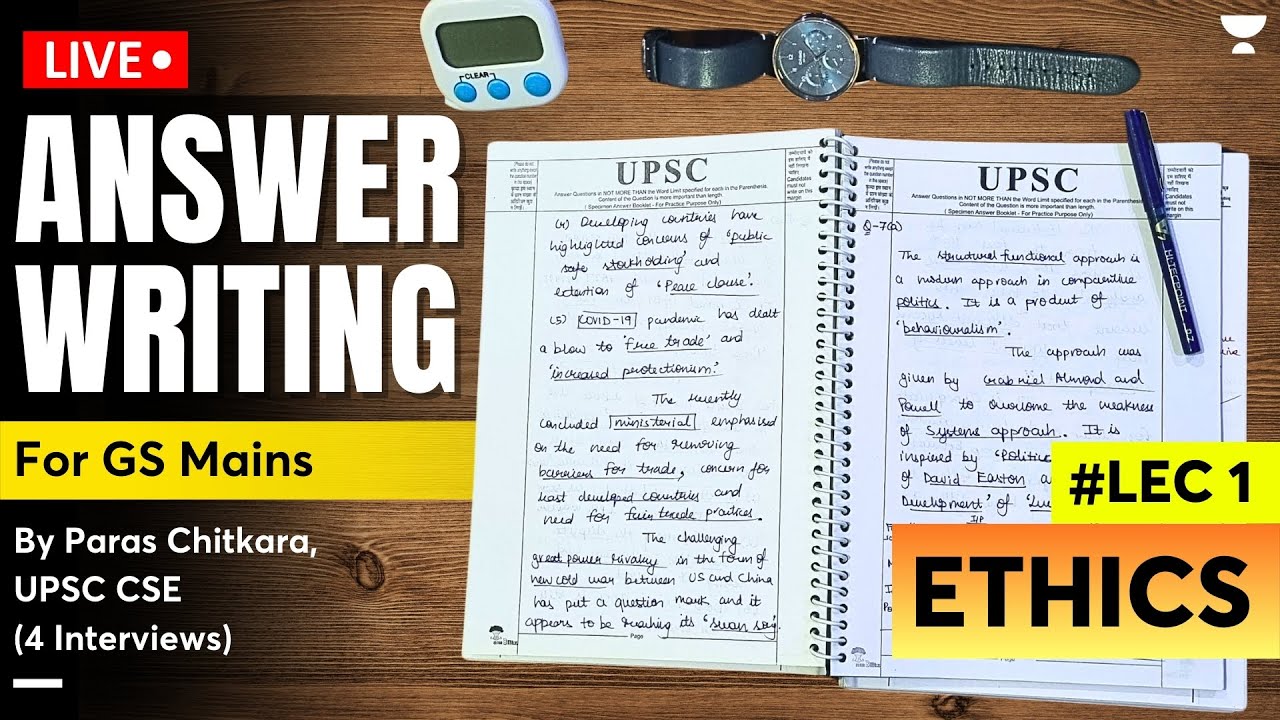 LIVE
ANSWER
WRITING
For GS Mains
By Paras Chitkara,
UPSC CSE
(4 Interviews)
CLEAR
UPSC
Answer Questions in NOT MORE THAN the Word Limit specified for each in the Parenthesis.
Content of the Question is more important than length.
( Specimen Answer Booklet - For Practice Purpose Only)
उम्मीदवारों को
इस हाशिए में
नहीं लिखना
चाहिए
Candidates
must not
write on this
margin
Developing countries have
highlighted concerns of 'public
stockholding' and
'Peace clause'.
COVID-19 pandemic has dealt
a blow to 'free trade' and
'increased protectionism'.
The recently
concluded ministerial emphasised
on the need for removing
barriers for trade, concern for
least developed countries and
need for fair trade practices.
The challenging
great power rivalry in the form of
new cold war between US and China
has put a question mark and it
appears to be reaching its 'swan song'.
Page
UPSC
Answer Questions in NOT MORE THAN the Word Limit specified for each in the Parenthesis.
Content of the Question is more important than length.
( Specimen Answer Booklet - For Practice Purpose Only)
उम्मीदवारों को
इस हाशिए में
नहीं लिखना
चाहिए
Candidates
must not
write on this
margin
Q-7(a)
The structural functional approach is
a modern approach in comparative
politics. It is a product of
'behaviouralism'.
The approach was
given by Gabriel Almond and
Powell to overcome the weakness
of Systems approach. It is
inspired by 'Politic
of David Easton
Development' of
#LEC 1
ETHICS